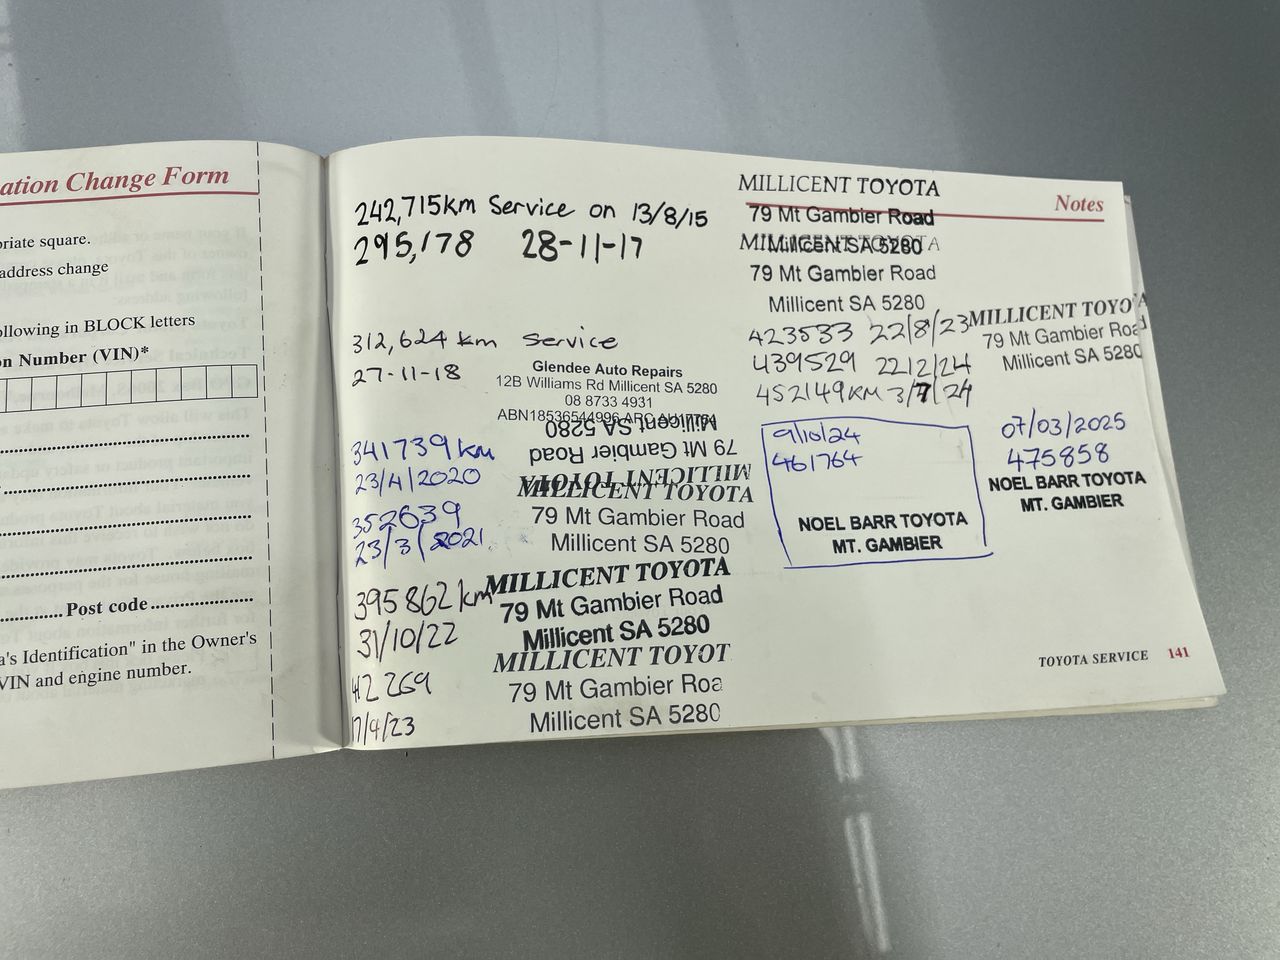 ation Change Form
riate square.
address change
ollowing in BLOCK letters
n Number (VIN)*
Post code
a's Identification" in the Owner's
VIN and engine number.
242,715km Service on 13/8/15
295,178 28-11-17
312,624 km Service
27-11-18
Glendee Auto Repairs
12B Williams Rd Millicent SA 5280
08 8733 4931
ABN18536544996 ARC
MILLICENT TOYOTA
79 Mt Gambier Road
Millicent SA 5280
341739 km
23/4/2020
352639
23/3/2021
MILLICENT TOYOTA
79 Mt Gambier Road
Millicent SA 5280
395862 km
31/10/22
MILLICENT TOYOTA
79 Mt Gambier Road
Millicent SA 5280
412269
17/4/23
MILLICENT TOYOT
79 Mt Gambier Roa
Millicent SA 5280
Notes
MILLICENT TOYOTA
79 Mt Gambier Road
Millicent SA 5280
MILLICENT TOYOTA
79 Mt Gambier Road
Millicent SA 5280
423533 22/8/23
439529 22/2/24
452149KM 3/7/24
MILLICENT TOYOTA
79 Mt Gambier Road
Millicent SA 5280
9/10/24
461764
NOEL BARR TOYOTA
MT. GAMBIER
07/03/2025
475858
NOEL BARR TOYOTA
MT. GAMBIER
TOYOTA SERVICE 141